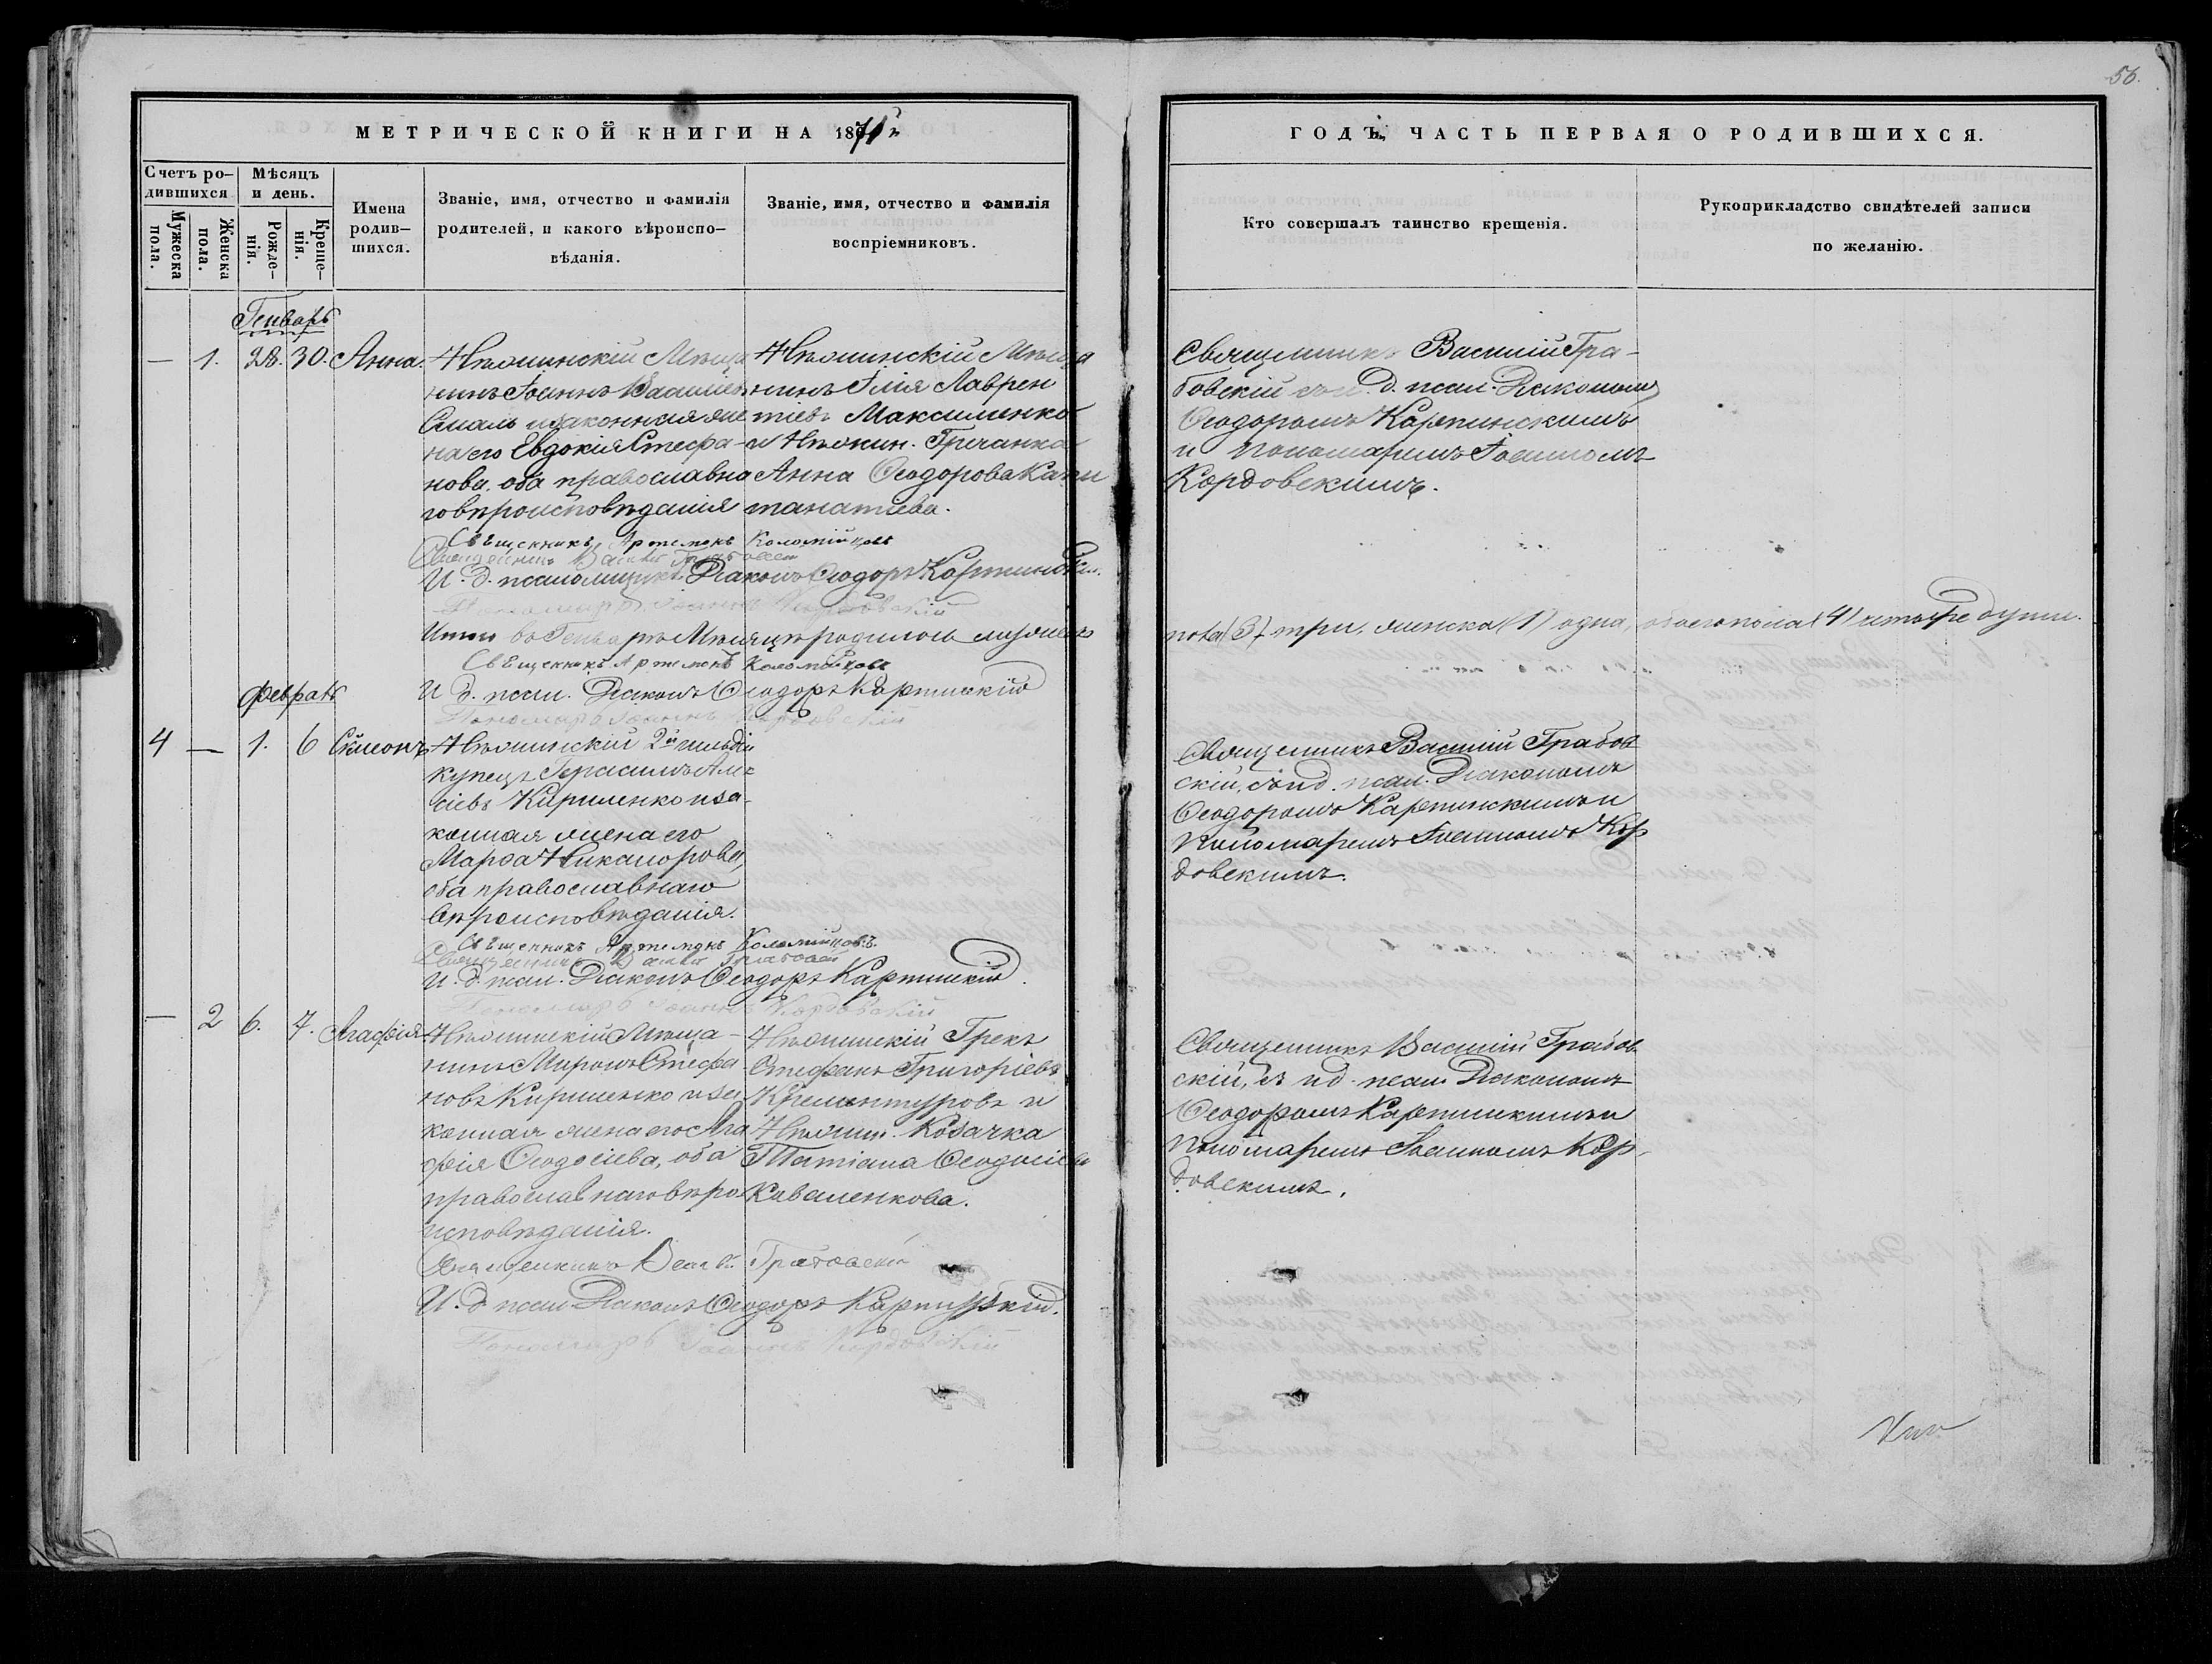 56.
МЕТРИЧЕСКОЙ КНИГИ НА 1871й
ГОДЪ, ЧАСТЬ ПЕРВАЯ О РОДИВШИХСЯ.
Счетъ ро-
дившихся
Мужеска
пола.
Женска
пола.
Мѣсяцъ
и день.
Рожде-
нія.
Креще-
нія.
Имена
родив-
шихся.
Званіе, имя, отчество и фамилія
родителей, и какого вѣроиспо-
вѣданія.
Званіе, имя, отчество и фамилія
воспріемниковъ.
Кто совершалъ таинство крещенія.
Рукоприкладство свидѣтелей записи
по желанію.
Генварь
— 1. 28. 30. Анна.
Нѣжинскій Мѣща
нинъ Іоаннъ Василіев
и законная же
на его Евдокія Стефа-
нова, оба православна
го вѣроисповѣданія
Нѣжинскій Мѣща
нинъ Илія Лаврен
тіевъ Максименко
и Нѣжин. Гречанка
Анна Ѳеодорова Капи
танатіева.
Священникъ Василій Гра-
бовскій съ и. д. псал. Діакономъ
Ѳеодоромъ Карпинскимъ
и пономаремъ Іоанномъ
Кордовскимъ.
Священникъ Артемонъ Коломійцовъ
Священникъ Василій Грабовскій
И. д. псаломщика Діаконъ Ѳеодоръ Карпинскій.
Пономарь Іоаннъ Кордовскій
Итого въ Генварѣ Мѣсяцѣ родилось мужеска
пола (3) три, женска (1) одна, обоего пола (4) четыре души.
Священникъ Артемонъ Коломойцовъ
И. д. псал. Діаконъ Ѳеодоръ Карпинскій
Пономарь Іоаннъ Кордовскій
Февраль
4 — 1. 6 Сѵмеонъ
Нѣжинскій 2й гильдіи
купецъ Герасимъ
Кириленко и за-
конная жена его
Марѳа Никанорова,
оба православнаго
вѣроисповѣданія.
Священникъ Василій Грабов
скій, съ и д. псал. Діакономъ
Ѳеодоромъ Карпинскимъ и
Пономаремъ Іоанномъ Кор
довскимъ.
Священникъ Артемонъ Коломійцовъ.
Священникъ Василій Грабовскій
И. д. псал. Діаконъ Ѳеодоръ Карпинскій.
Пономарь Іоаннъ Кордовскій
— 2 6. 7. Агафія
Нѣжинскій Мѣща-
нинъ Миронъ Стефа
новъ Кириленко и за
конная жена его Ага
фія Ѳеодосіева, оба
православнаго вѣро
исповѣданія.
Нѣжинскій Грекъ
Стефанъ Григоріевъ
Кременчуровъ и
Нѣжин. Козачка
Татіана Ѳеодосіева
Коваленкова.
Священникъ Василій Грабов
скій, съ и д. псал. Діакономъ
Ѳеодоромъ Карпинскимъ и
пономаремъ Іоанномъ Кор-
довскимъ.
Священникъ Васил. Грабовскій
И. д. псал. Діаконъ Ѳеодоръ Карпинскій.
Пономарь Іоаннъ Кордовскій